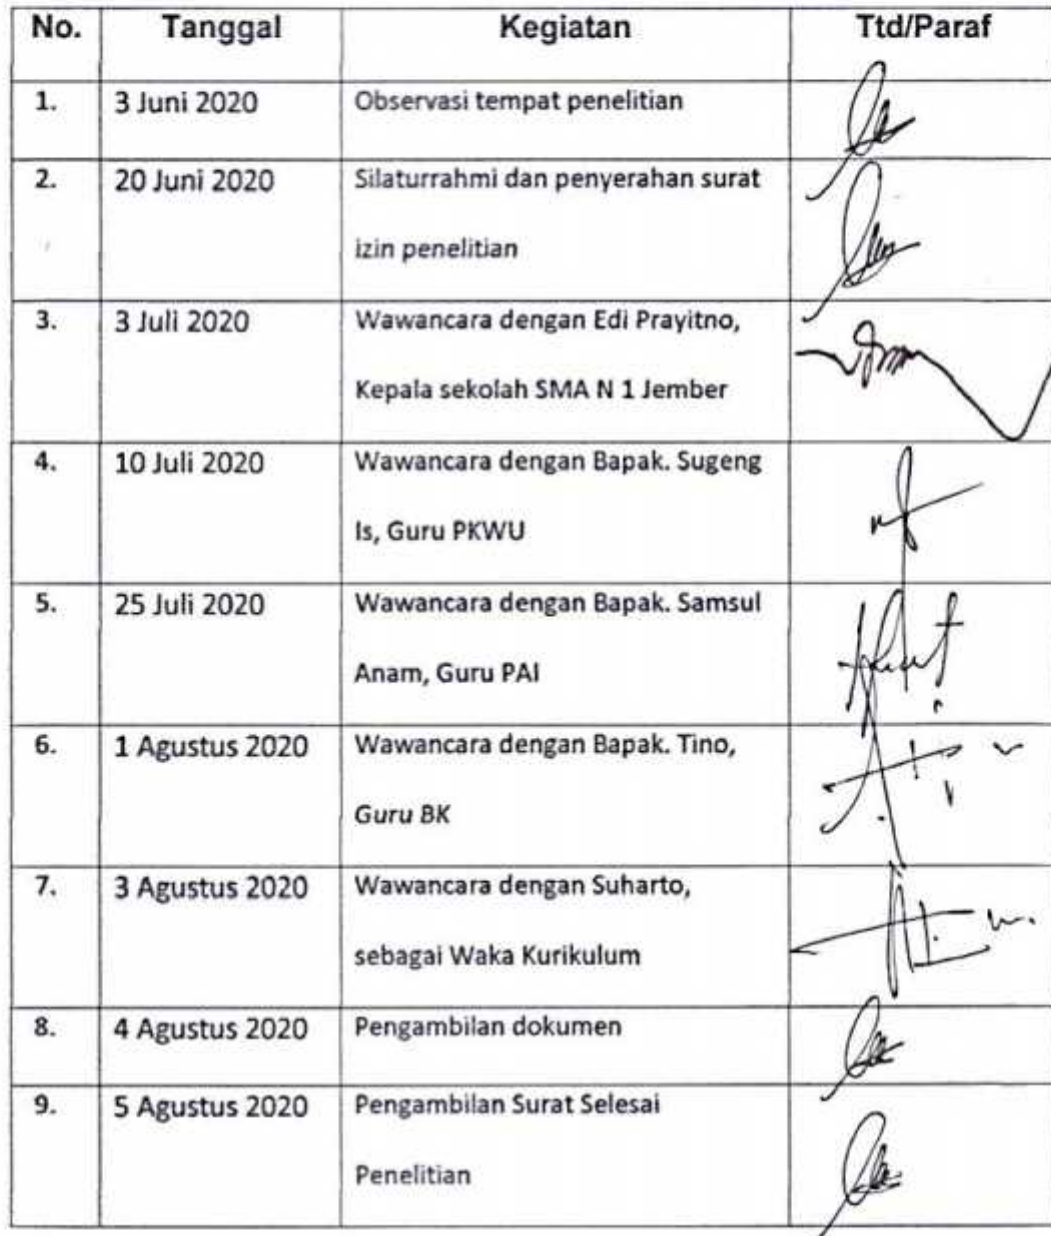 No. Tanggal Kegiatan Ttd/Paraf
1. 3 Juni 2020 Observasi tempat penelitian
2. 20 Juni 2020 Silaturrahmi dan penyerahan surat
izin penelitian
3. 3 Juli 2020 Wawancara dengan Edi Prayitno,
Kepala sekolah SMA N 1 Jember
4. 10 Juli 2020 Wawancara dengan Bapak. Sugeng
Is, Guru PKWU
5. 25 Juli 2020 Wawancara dengan Bapak. Samsul
Anam, Guru PAI
6. 1 Agustus 2020 Wawancara dengan Bapak. Tino,
Guru BK
7. 3 Agustus 2020 Wawancara dengan Suharto,
sebagai Waka Kurikulum
8. 4 Agustus 2020 Pengambilan dokumen
9. 5 Agustus 2020 Pengambilan Surat Selesai
Penelitian